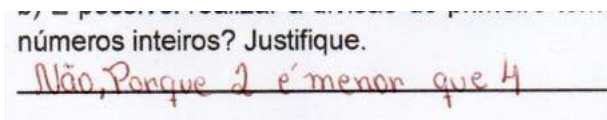 números inteiros? Justifique.
Não, Porque 2 é menor que 4